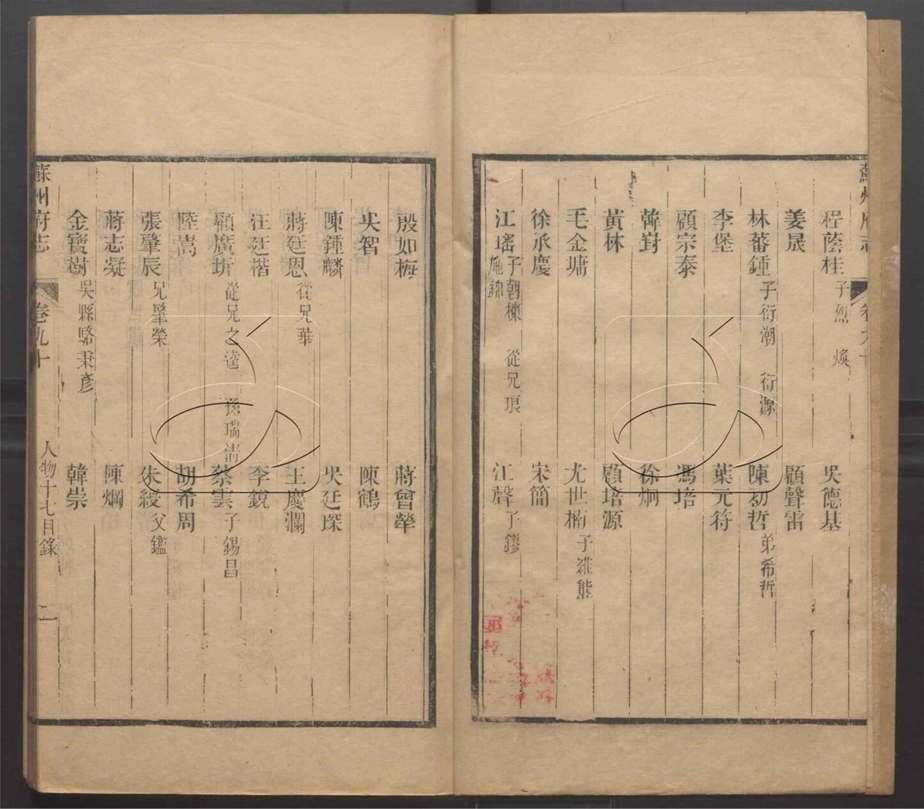 程蔭桂 子烈 煥 吳德基
姜晟 顧聲雷
林蕃鍾 子衍潮 衍源 陳初哲 弟希哲
李堡 葉元符
顧宗泰 馮培
韓對 徐炯
黃林 顧培源
毛金塘 尤世楠 子維熊
徐承慶 宋簡
江瑤 子朝棟 從兄琅 江聲 子鏐
殷如梅 蔣曾犖
吳智 陳鶴
陳鍾麟 吳廷琛
蔣廷恩 從兄華 王慶瀾
汪廷楷 李銳
顧廣圻 從兄之逵 孫瑞清 蔡雲 子錫昌
陸嵩 胡希周
張肇辰 兄肇榮 朱綬 父鑑
蔣志凝 陳烱
金寶樹 吳縣駱秉彥 韓崇
蘇州府志 卷九十 人物十七目錄 二